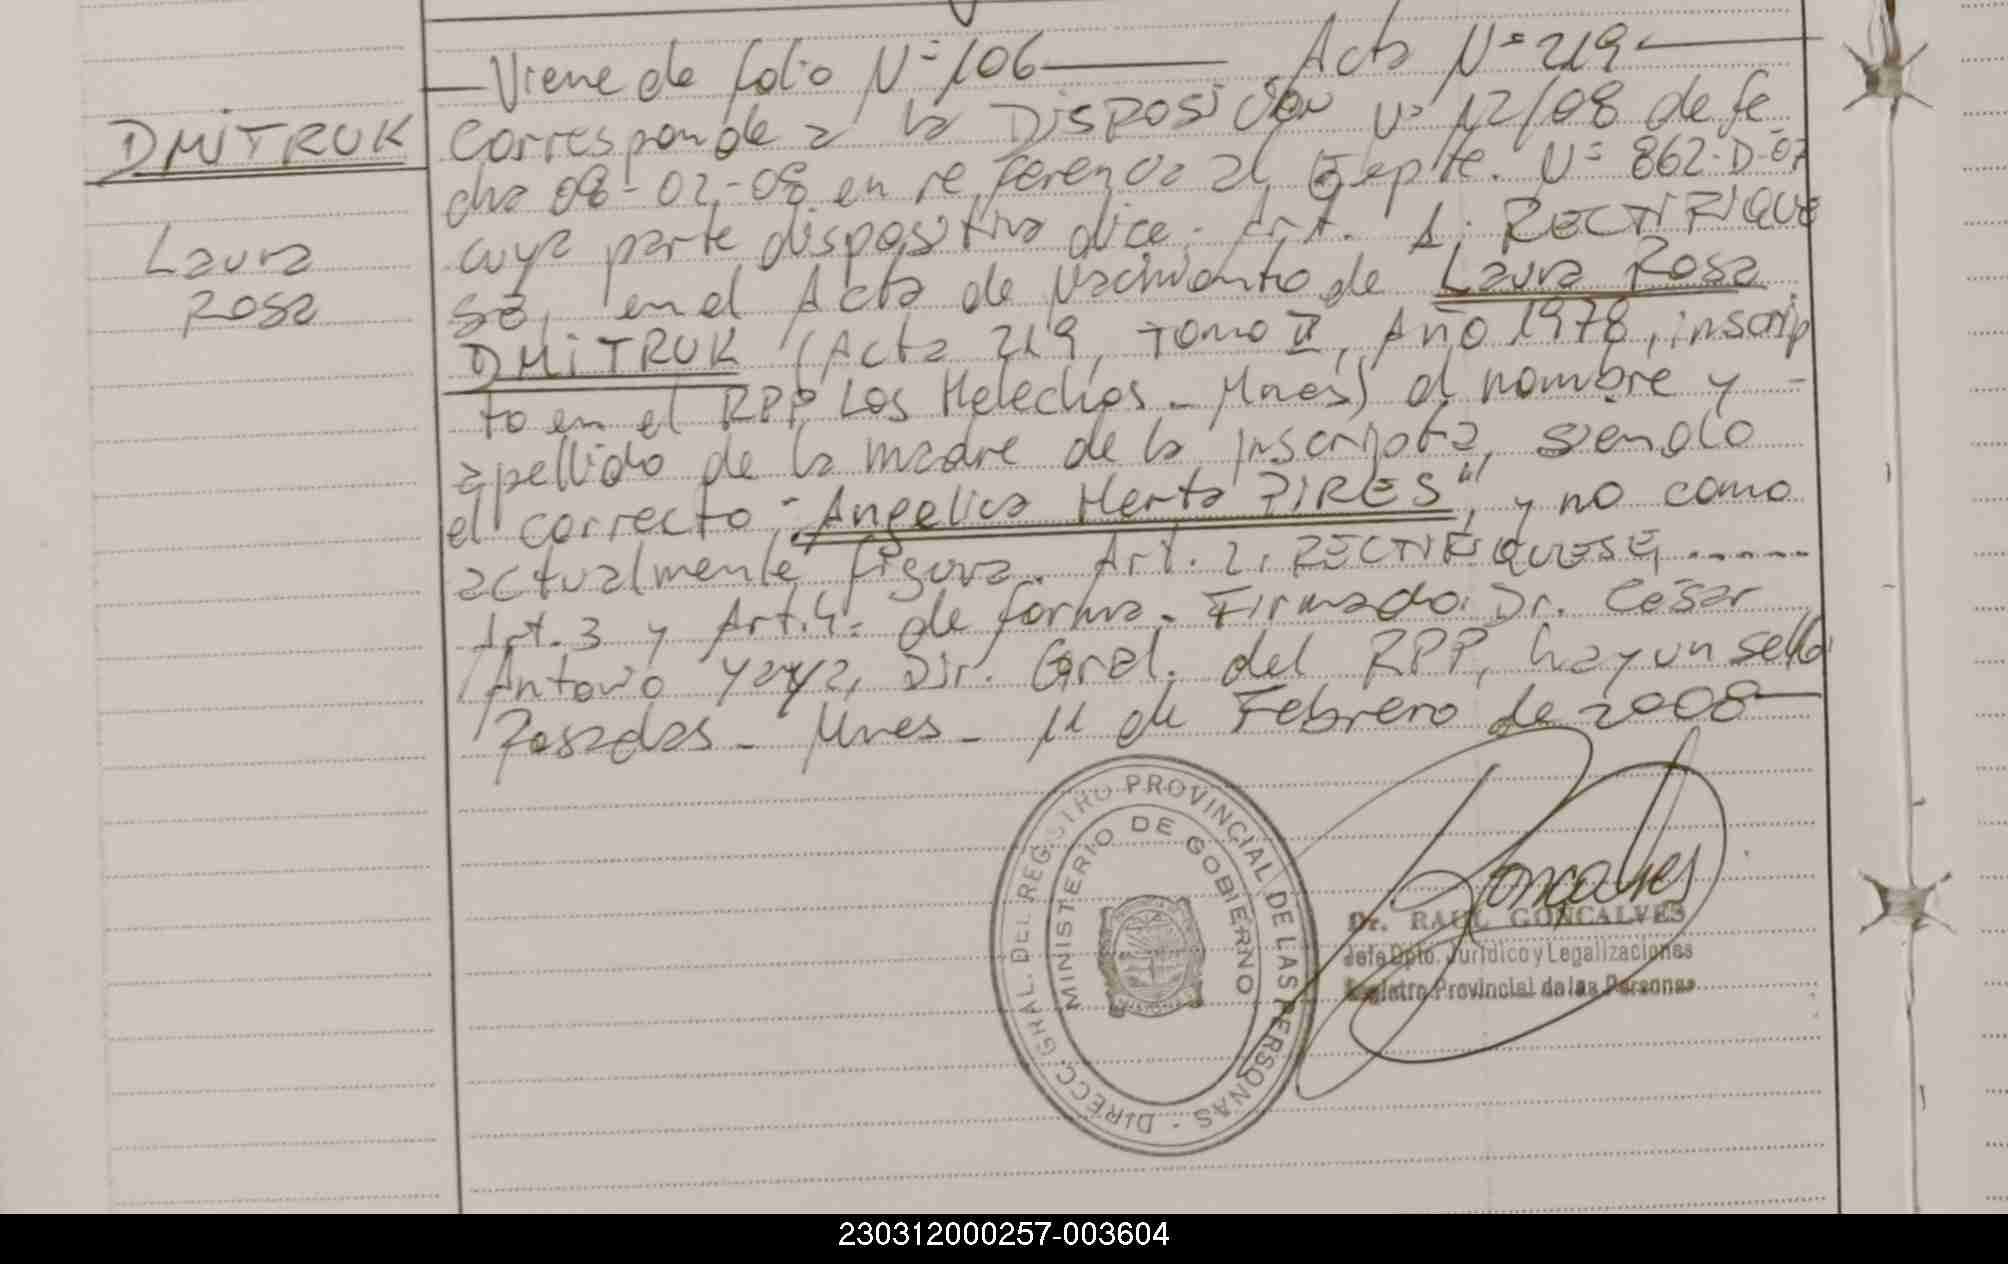 Viene de folio Nº 106 Acta Nº 219
DMITRUK
Laura
Rosa
Corresponde a la DISPOSICION Nº 12/08 de fe
cha 08-02-08 en referencia al Expte. Nº 862-D-07
cuya parte dispositiva dice. Art. 1: RECTIFIQUE
SE, en el Acta de Nacimiento de Laura Rosa
DMITRUK (Acta 219, Tomo II, Año 1978, inscrip
to en el RPP Los Helechos - Mnes) el nombre y -
apellido de la madre de la inscripta, siendo
el correcto "Angelica Herta PIRES", y no como
actualmente figura. Art. 2: RECTIFIQUESE, ......
Art. 3 y Art. 4: de forma. Firmado: Dr. Cesar
Antonio Yaya, Dir. Gral. del RPP, hay un sello
Posadas - Mnes - 11 de Febrero de 2008
DIRECC. GRAL. DEL REGISTRO PROVINCIAL DE LAS PERSONAS -
MINISTERIO DE GOBIERNO
Goncalves
Dr. RAUL GONCALVES
Jefe Dpto. Jurídico y Legalizaciones
Registro Provincial de las Personas
230312000257-003604